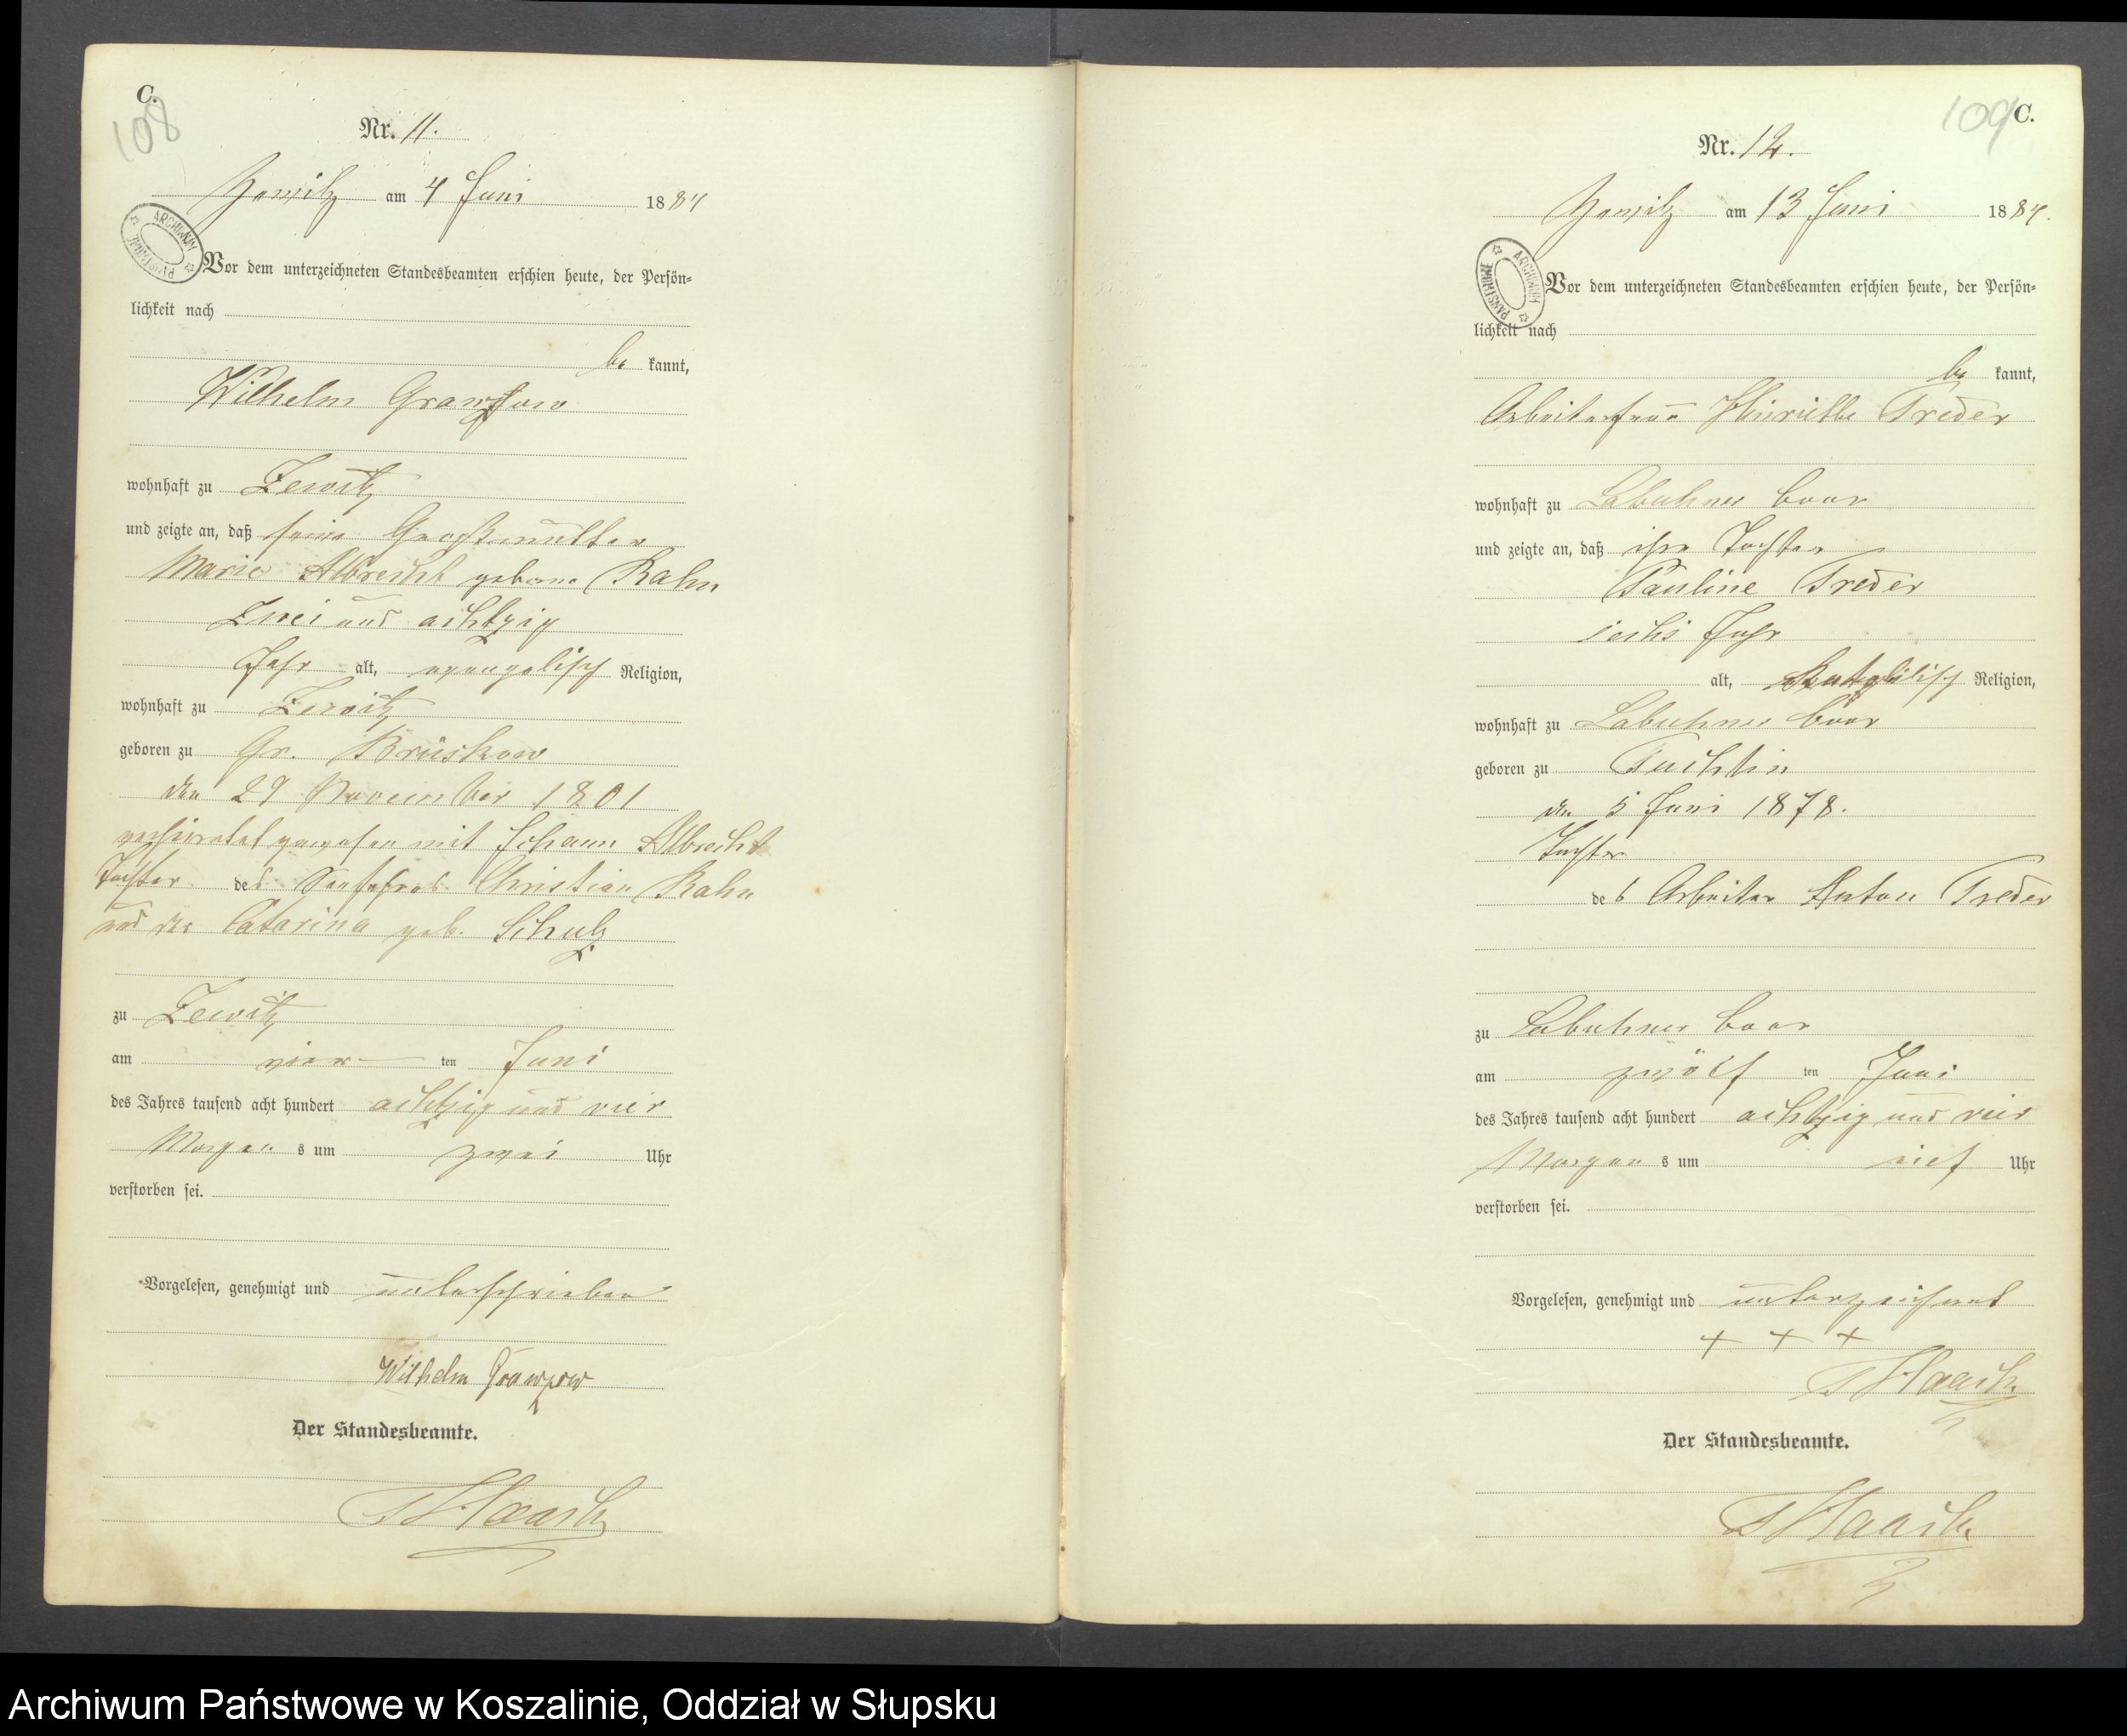 C.
108
Nr. 11.
Zewitz am 4 Juni 1884
ARCHIWUM PAŃSTWOWE
Vor dem unterzeichneten Standesbeamten erschien heute, der Persön-
lichkeit nach
be kannt,
Wilhelm
wohnhaft zu Zewitz
und zeigte an, daß seine Großmutter
Marie Albrecht geborne Rahn
Zwei und achtzig
Jahr alt, evangelisch Religion,
wohnhaft zu Zewitz
geboren zu Gr. Brüskow
den 29 November 1801
verheiratet gewesen mit Johann Albrecht
Tochter des Christian Rahn
und der Catarina geb. Schulz
zu Zewitz
am vier ten Juni
des Jahres tausend acht hundert achtzig und vier
Morgen s um zwei Uhr
verstorben sei.
Vorgelesen, genehmigt und unterschrieben
Wilhelm
Der Standesbeamte.
Haasch
109
C.
Nr. 12.
Zewitz am 13 Juni 1884.
ARCHIWUM PAŃSTWOWE
Vor dem unterzeichneten Standesbeamten erschien heute, der Persön-
lichkeit nach
be kannt,
Arbeiterfrau Henriette Treder
wohnhaft zu Labuhner
und zeigte an, daß ihre Tochter
Pauline Treder
sechs Jahr
alt, Katholisch Religion,
wohnhaft zu Labuhner
geboren zu Tuchlin
den 5 Juni 1878.
Tochter
des Arbeiter Anton Treder
zu Labuhner
am zwölf ten Juni
des Jahres tausend acht hundert achtzig und vier
Morgen s um Uhr
verstorben sei.
Vorgelesen, genehmigt und unterzeichnet
+ + +
Haasch
Der Standesbeamte.
Haasch
Archiwum Państwowe w Koszalinie, Oddział w Słupsku